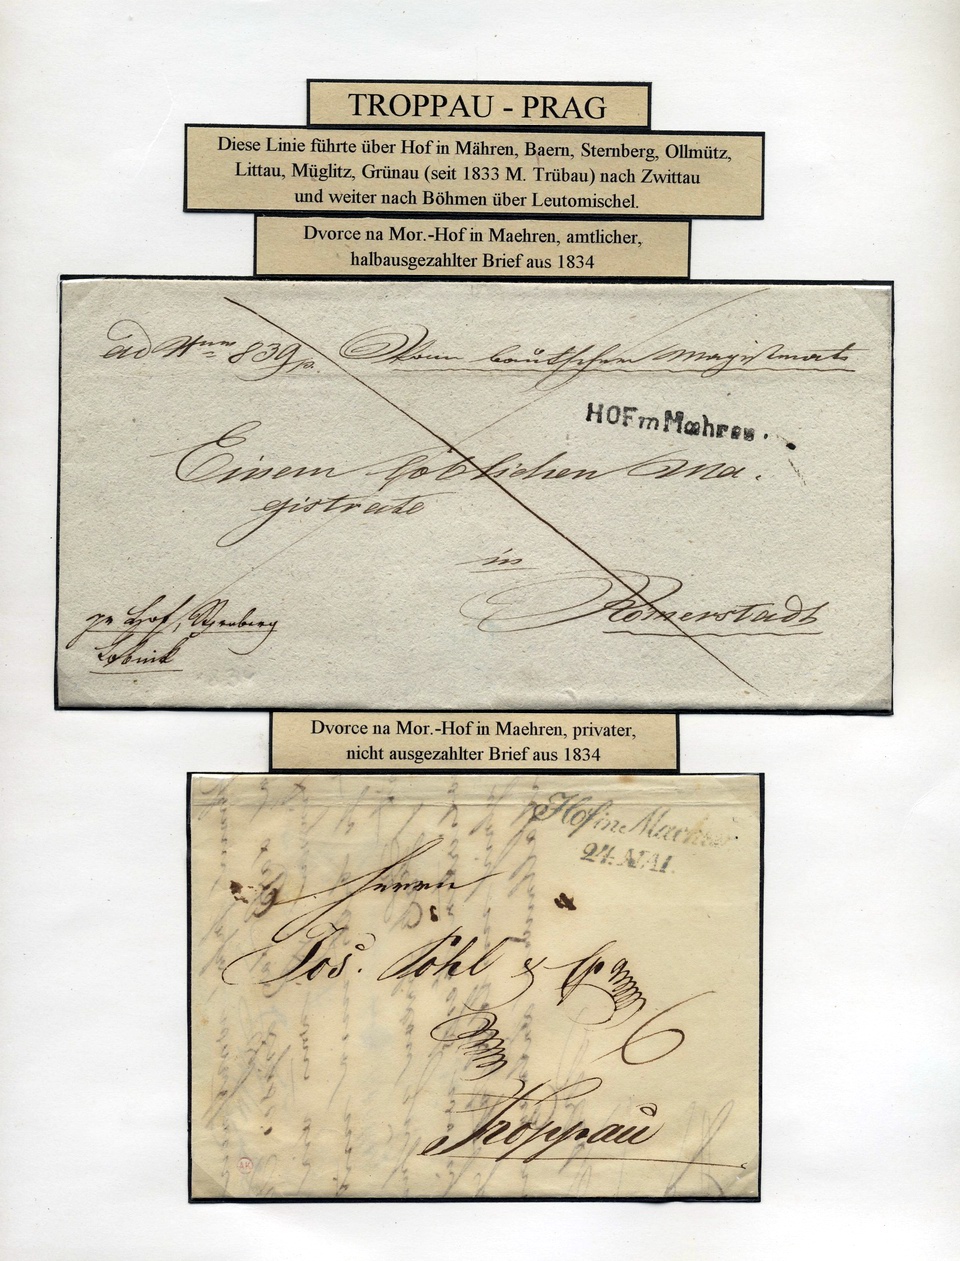 TROPPAU - PRAG
Diese Linie führte über Hof in Mähren, Baern, Sternberg, Ollmütz,
Littau, Müglitz, Grünau (seit 1833 M. Trübau) nach Zwittau
und weiter nach Böhmen über Leutomischel.
Dvorce na Mor.-Hof in Maehren, amtlicher,
halbausgezahlter Brief aus 1834
ad Num 839 Vom bautscher Magistrate
HOF in Maehren.
Einem löblichen Ma-
gistrate
in
Römerstadt
pr Hof, Sternberg
Lobnik
Dvorce na Mor.-Hof in Maehren, privater,
nicht ausgezahlter Brief aus 1834
Hof in Maehren
24. MAI.
Herrn
Jos. Pohl &
6
Troppau